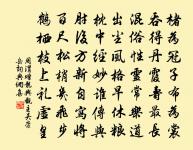 楮為冠子布為裳
吞得丹霞壽最長
混俗性靈常樂道
出塵風格早休糧
枕中經妙誰傳與
肘後方新自寫將
百尺松梢幾飛步
鶴棲枝上禮虛皇
周渭贈龍興觀主吳崇
岳詩詞典網集